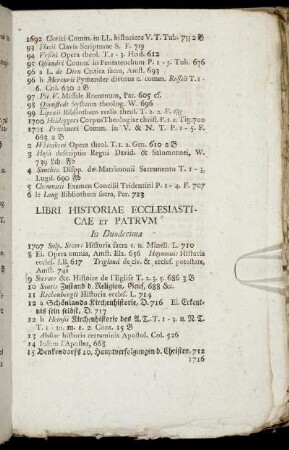 1692 Clerici Comm. in LL. historicos V. T. Tub. 733 2 B
93 Flacii Clavis Scripturae S. F. 719
94 Vrsini Opera theol. T. 1-3. Heid. 612
95 Osiandri Comm. in Pentateuchum P. 1-5. Tub. 676
96 a L. de Dieu Critica sacra, Amst. 693
96 b Mercurii Pymander divinus c. comm. Rosselii T. 1-
6. Col. 630 2 B
97 Pii V. Missale Romanum, Par. 605
98 Quenstedt Systema theolog. W. 696
99 Lipenii Bibliotheca realis theol. T. 1. 2. F.
1700 Heideggeri Corpus Theologiae christ. P. 1. 2. Tig. 700
1701 Piscatoris Comm. in V. & N. T. P. 1-5. F.
663 2 B
2 Whitakeri Opera theol. T. 1. 2. Gen. 610 2 B
3 Hasii descriptio Regni David. & Salomonei, W.
739
4 Sanchez Disp. de Matrimonii Sacramento T. 1-3.
Lugd. 690
5 Chemnitii Examen Concilii Tridentini P. 1-4. F. 707
6 le Long Bibliotheca sacra, Par. 723
LIBRI HISTORIAE ECCLESIASTI-
CAE ET PATRVM
In Duodecimo
1707 Sulp. Severi Historia sacra c. n. Minell. L. 710
8 Ei. Opera omnia, Amst. Elz. 656 Hegonomii Historia
eccles. LB. 617 Trigland de civ. & eccles. potestate,
Amst. 742
9 Socrate &c. Histoire de l'Eglise T. 2. 3. 5. 686 3 B
10 Soaris Zustand d. Religion, Genf, 688 &c.
11 Rechenbergii Historia eccles. L. 714
12 a Schadlands Kirchenhistorie, D. 716 Ei. Erkent-
nis sein selbst, D. 717
12 b Heinsii Kirchenhistorie des A. T. T. 1-3. u. N. T.
T. 1-10. m. 1. 2. Cont. 15 B
13 Abdiae historia certaminis Apostol. Col. 526
14 Iidem l'Apostat, 663
15 Denkendorfs 10. Hauptverfolgungen d. Christen, 712
1716